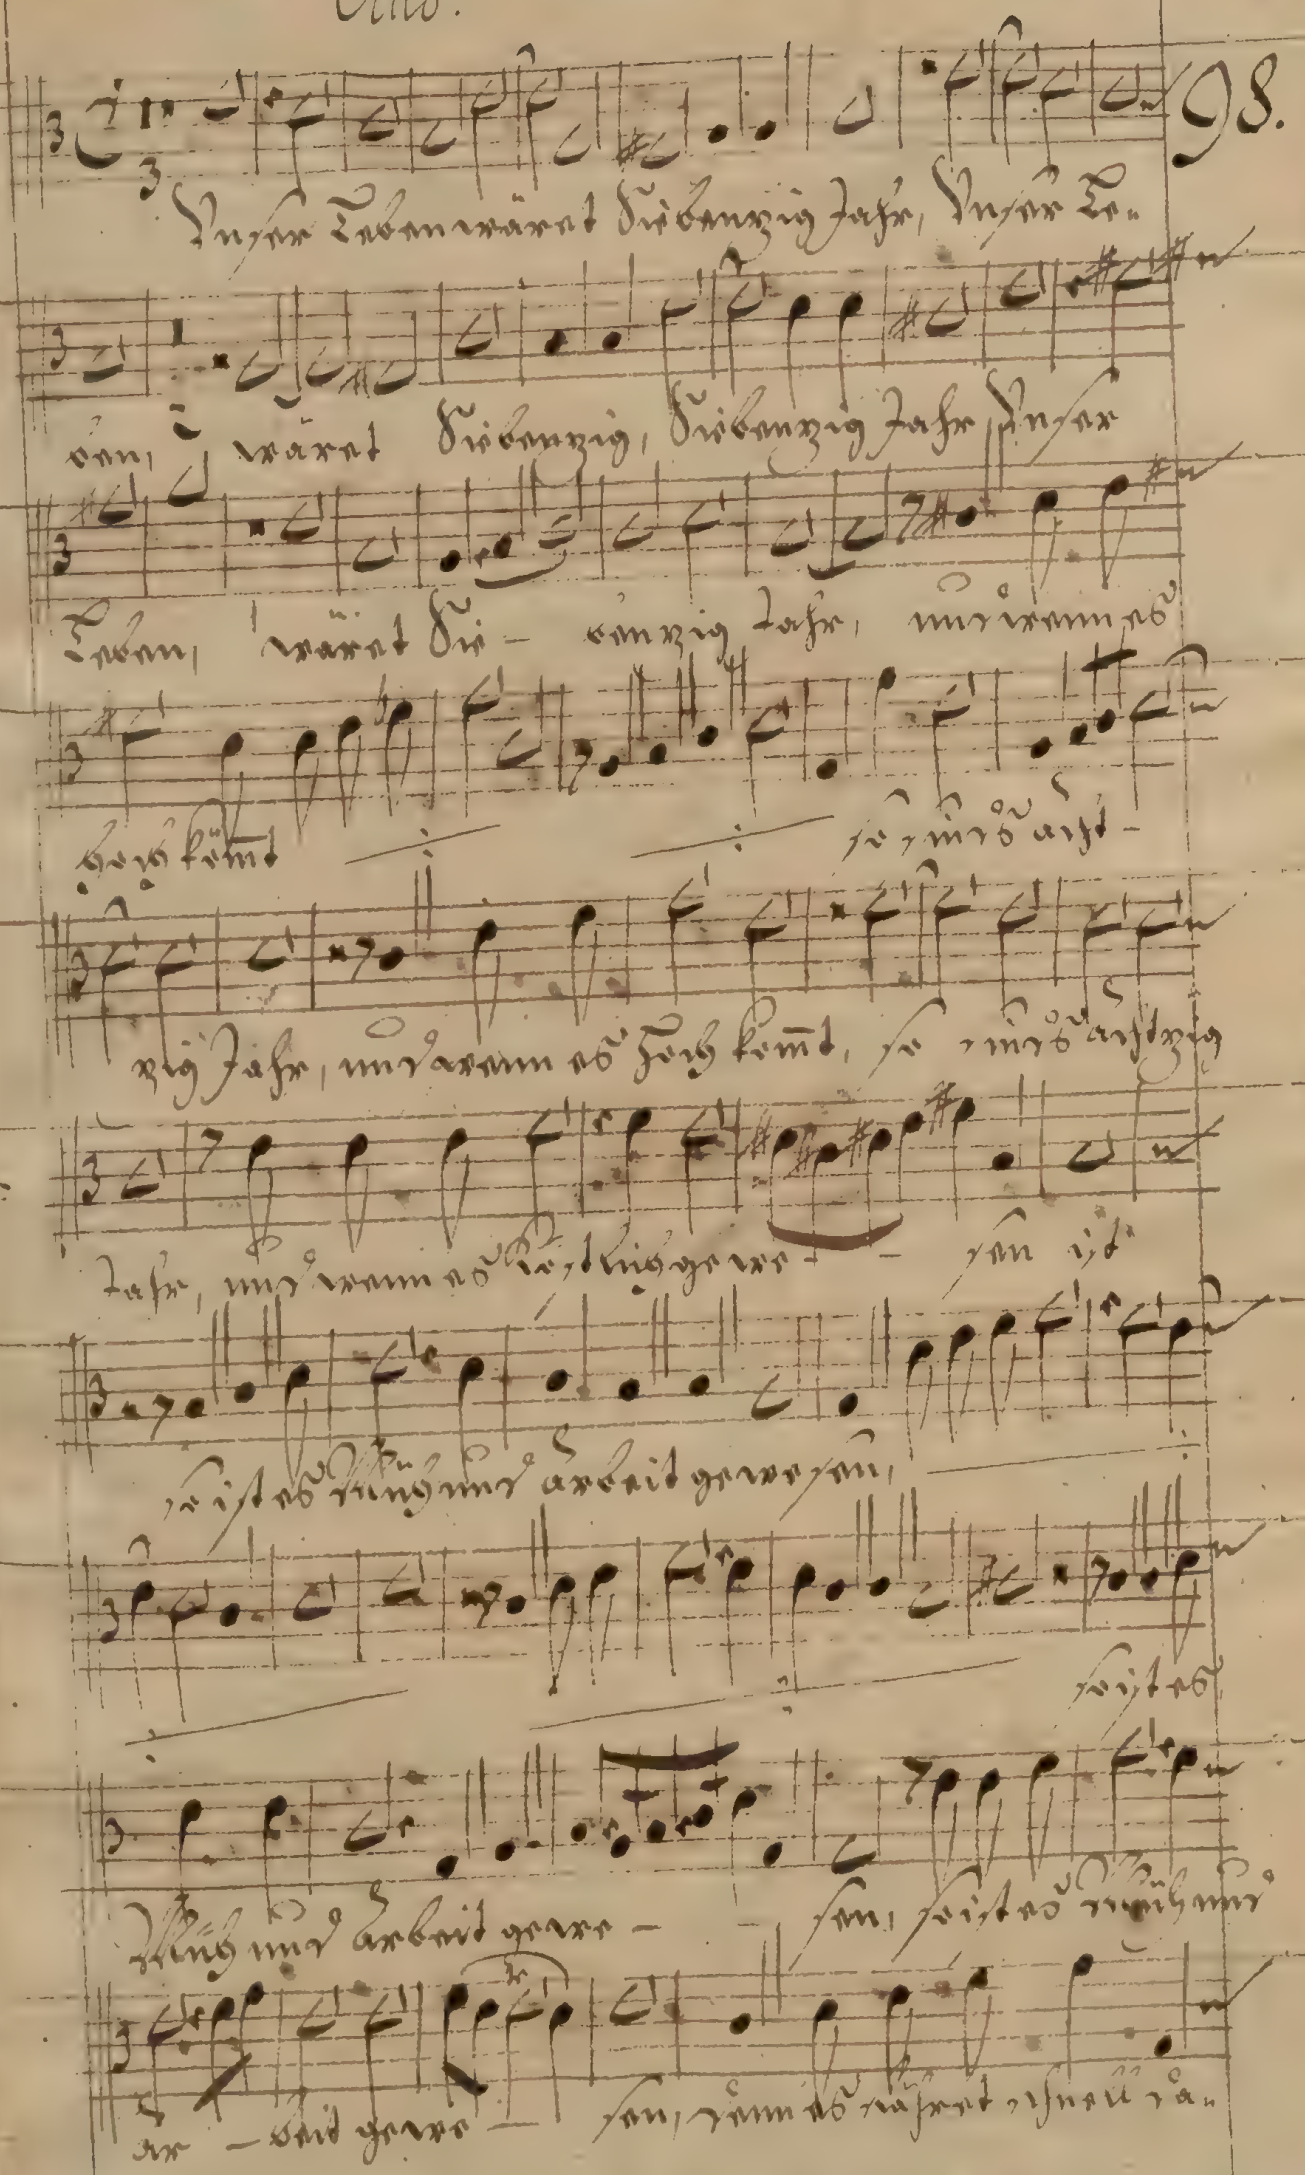 Alto.
98.
Unser Leben wäret Siebenzig Jahr, Unser Le-
ben, wäret Siebenzig, Siebenzig Jahr, Unser
Leben, wäret Sie - benzig Jahr, und wenn es
hoch kömt so sinds acht -
zig Jahr, und wenn es hoch kömt, so sinds achtzig
Jahr, und wenn es köstlich gewe - - sen ist
so ist es Müh und arbeit gewesen,
so ist es
Müh und arbeit gewe - - sen, so ist es Müh und
ar - beit gewe - sen, denn es fähret schnell da-